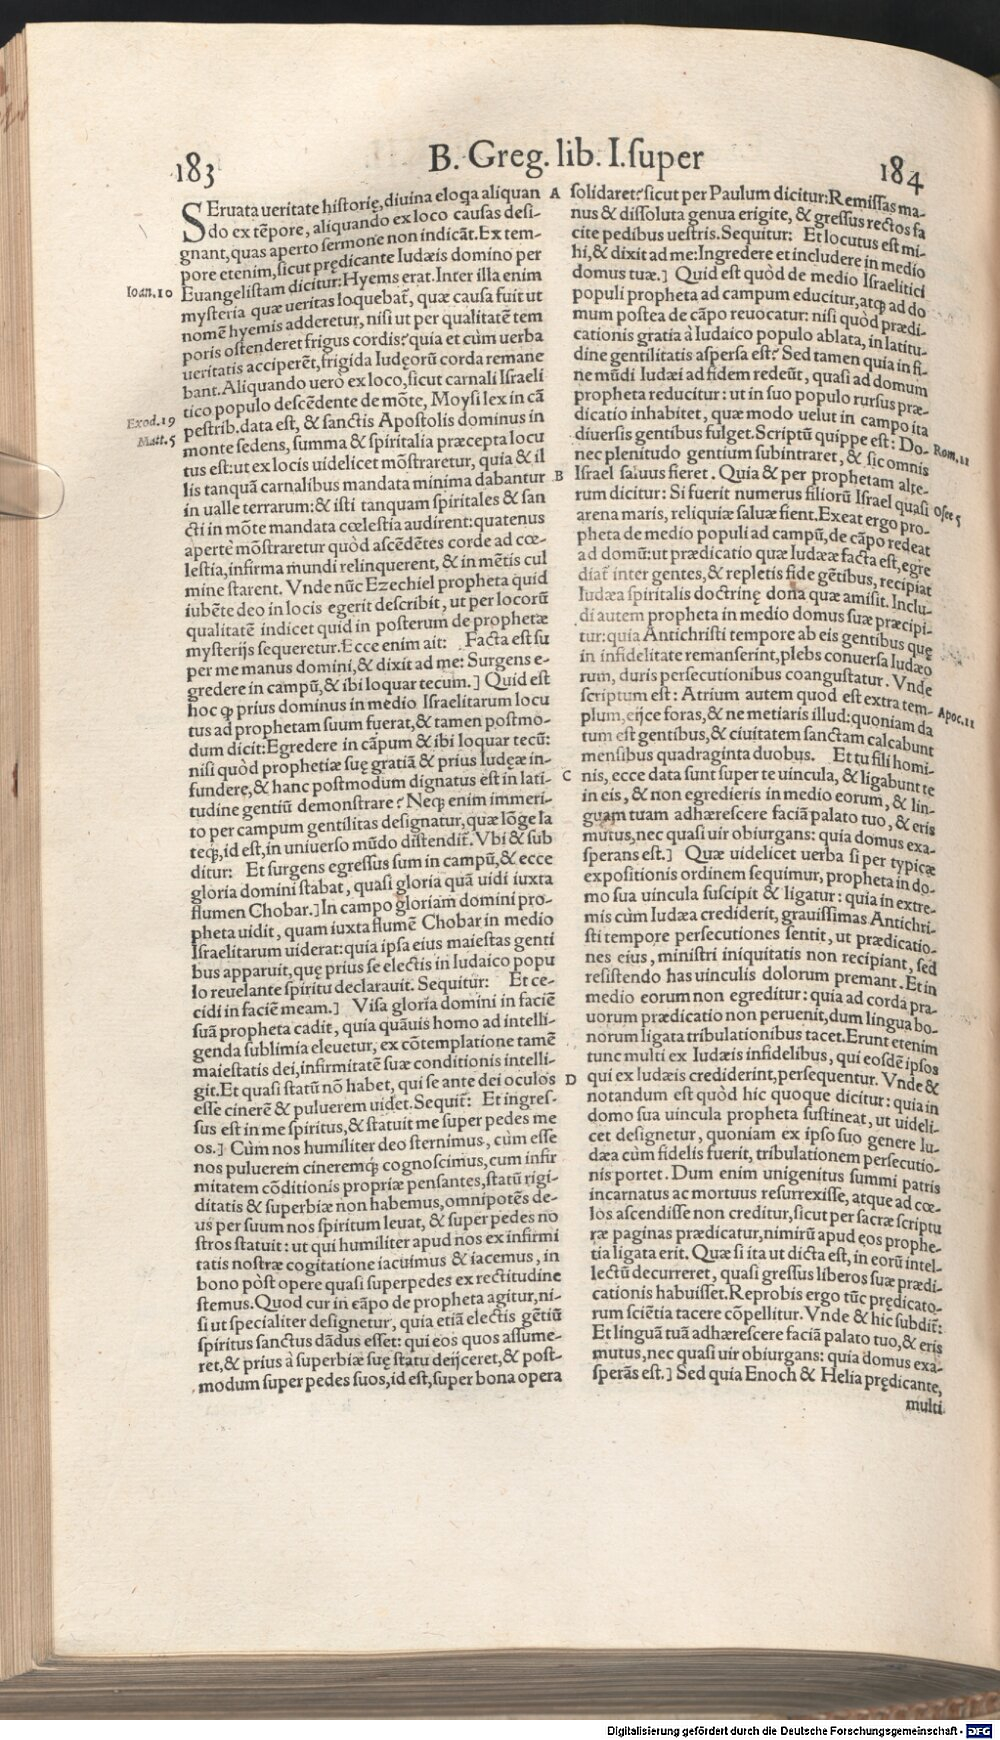 183
B. Greg. lib. I. super
184
SEruata ueritate historię, diuina eloqa aliquan
do ex tēpore, aliquando ex loco causas desi-
gnant, quas aperto sermone non indicāt. Ex tem-
pore etenim, sicut prędicante Iudæis domino per
Ioan. 10
Euangelistam dicitur: Hyems erat. Inter illa enim
mysteria quæ ueritas loquebat̄, quæ causa fuit ut
nomē hyemis adderetur, nisi ut per qualitatē tem
poris ostenderet frigus cordis? quia et cùm uerba
ueritatis acciperēt, frigida Iudęorū corda remane
bant. Aliquando uerò ex loco, sicut carnali Israeli
tico populo descēdente de mōte, Moysi lex in cā
Exod. 19
pestrib. data est, & sanctis Apostolis dominus in
Matt. 5
monte sedens, summa & spiritalia præcepta locu
tus est: ut ex locis uidelicet mōstraretur, quia & il
lis tanquā carnalibus mandata minima dabantur
in ualle terrarum: & isti tanquam spiritales & san
cti in mōte mandata cœlestia audirent: quatenus
apertè mōstraretur quòd ascēdētes corde ad cœ-
lestia, infirma mundi relinquerent, & in mētis cul
mine starent. Vnde nūc Ezechiel propheta quid
iubēte deo in locis egerit describit, ut per locorū
qualitatē indicet quid in posterum de prophetæ
mysterijs sequeretur. Ecce enim ait: Facta est su
per me manus domini, & dixit ad me: Surgens e-
gredere in campū, & ibi loquar tecum.] Quid est
hoc ꝙ prius dominus in medio Israelitarum locu
tus ad prophetam suum fuerat, & tamen postmo-
dum dicit: Egredere in cāpum & ibi loquar tecū:
nisi quòd prophetiæ suę gratiā & prius Iudęæ in-
fundere, & hanc postmodum dignatus est in lati-
tudine gentiū demonstrare? Neq; enim immeri-
to per campum gentilitas designatur, quæ lōge la
teq;, id est, in uniuerso mūdo distendit̄. Vbi & sub
ditur: Et surgens egressus sum in campū, & ecce
gloria domini stabat, quasi gloria quā uidi iuxta
flumen Chobar.] In campo gloriam domini pro-
pheta uidit, quam iuxta flumē Chobar in medio
Israelitarum uiderat: quia ipsa eius maiestas genti
bus apparuit, quę prius se electis in Iudaico popu
lo reuelante spiritu declarauit. Sequitur: Et ce-
cidi in faciē meam.] Visa gloria domini in faciē
suā propheta cadit, quia quāuis homo ad intelli-
genda sublimia eleuetur, ex cōtemplatione tamē
maiestatis dei, infirmitatē suæ conditionis intelli-
git. Et quasi statū nō habet, qui se ante dei oculos
esse cinerē & puluerem uidet. Sequit̄: Et ingres-
sus est in me spiritus, & statuit me super pedes me
os.] Cùm nos humiliter deo sternimus, cùm esse
nos puluerem cineremq; cognoscimus, cum infir
mitatem cōditionis propriæ pensantes, statū rigi-
ditatis & superbiæ non habemus, omnipotēs de-
us per suum nos spiritum leuat, & super pedes no
stros statuit: ut qui humiliter apud nos ex infirmi
tatis nostræ cogitatione iacuimus & iacemus, in
bono pòst opere quasi super pedes ex rectitudine
stemus. Quod cur in cāpo de propheta agitur, ni-
si ut specialiter designetur, quia etiā electis gētiū
spiritus sanctus dādus esset: qui eos quos assume-
ret, & prius à superbiæ suę statu deijceret, & post-
modum super pedes suos, id est, super bona opera
A
B
C
D
solidaret? sicut per Paulum dicitur: Remissas ma-
nus & dissoluta genua erigite, & gressus rectos fa
cite pedibus uestris. Sequitur: Et locutus est mi-
hi, & dixit ad me: Ingredere et includere in medio
domus tuæ.] Quid est quòd de medio Israelitici
populi propheta ad campum educitur, atq; ad do
mum postea de cāpo reuocatur: nisi quòd prædi-
cationis gratia à Iudaico populo ablata, in latitu-
dine gentilitatis aspersa est? Sed tamen quia in fi-
ne mūdi Iudæi ad fidem redeūt, quasi ad domum
propheta reducitur: ut in suo populo rursus præ-
dicatio inhabitet, quæ modo uelut in campo ita
diuersis gentibus fulget. Scriptū quippe est: Do-
Rom. 11
nec plenitudo gentium subintraret, & sic omnis
Israel saluus fieret. Quia & per prophetam alte-
rum dicitur: Si fuerit numerus filiorū Israel quasi
Osee 5
arena maris, reliquiæ saluæ fient. Exeat ergo pro-
pheta de medio populi ad campū, de cāpo redeat
ad domū: ut prædicatio quæ Iudææ facta est, egre
diat̄ inter gentes, & repletis fide gētibus, recipiat
Iudæa spiritalis doctrinę dona quæ amisit. Inclu-
di autem propheta in medio domus suæ præcipi-
tur: quia Antichristi tempore ab eis gentibus quę
in infidelitate remanserint, plebs conuersa Iudæo
rum, duris persecutionibus coangustatur. Vnde
scriptum est: Atrium autem quod est extra tem-
Apoc. 11
plum, eijce foras, & ne metiaris illud: quoniam da
tum est gentibus, & ciuitatem sanctam calcabunt
mensibus quadraginta duobus. Et tu fili homi-
nis, ecce data sunt super te uincula, & ligabunt te
in eis, & non egredieris in medio eorum, & lin-
guam tuam adhærescere faciā palato tuo, & eris
mutus, nec quasi uir obiurgans: quia domus exa-
sperans est.] Quæ uidelicet uerba si per typicæ
expositionis ordinem sequimur, propheta in do-
mo sua uincula suscipit & ligatur: quia in extre-
mis cùm Iudæa crediderit, grauissimas Antichri-
sti tempore persecutiones sentit, ut prædicatio-
nes eius, ministri iniquitatis non recipiant, sed
resistendo has uinculis dolorum premant. Et in
medio eorum non egreditur: quia ad corda pra-
uorum prædicatio non peruenit, dum lingua bo-
norum ligata tribulationibus tacet. Erunt etenim
tunc multi ex Iudæis infidelibus, qui eosdē ipsos
qui ex Iudæis crediderint, persequentur. Vnde &
notandum est quòd hic quoque dicitur: quia in
domo sua uincula propheta sustineat, ut uideli-
cet designetur, quoniam ex ipso suo genere Iu-
dæa cùm fidelis fuerit, tribulationem persecutio-
nis portet. Dum enim unigenitus summi patris
incarnatus ac mortuus resurrexisse, atque ad cœ-
los ascendisse non creditur, sicut per sacræ scriptu
ræ paginas prædicatur, nimirū apud eos prophe-
tia ligata erit. Quæ si ita ut dicta est, in eorū intel-
lectū decurreret, quasi gressus liberos suæ prædi-
cationis habuisset. Reprobis ergo tūc prędicato-
rum sciētia tacere cōpellitur. Vnde & hic subdit̄:
Et linguā tuā adhærescere faciā palato tuo, & eris
mutus, nec quasi uir obiurgans: quia domus exa-
sperās est.] Sed quia Enoch & Helia prędicante,
multi
Digitalisierung gefördert durch die Deutsche Forschungsgemeinschaft - DFG